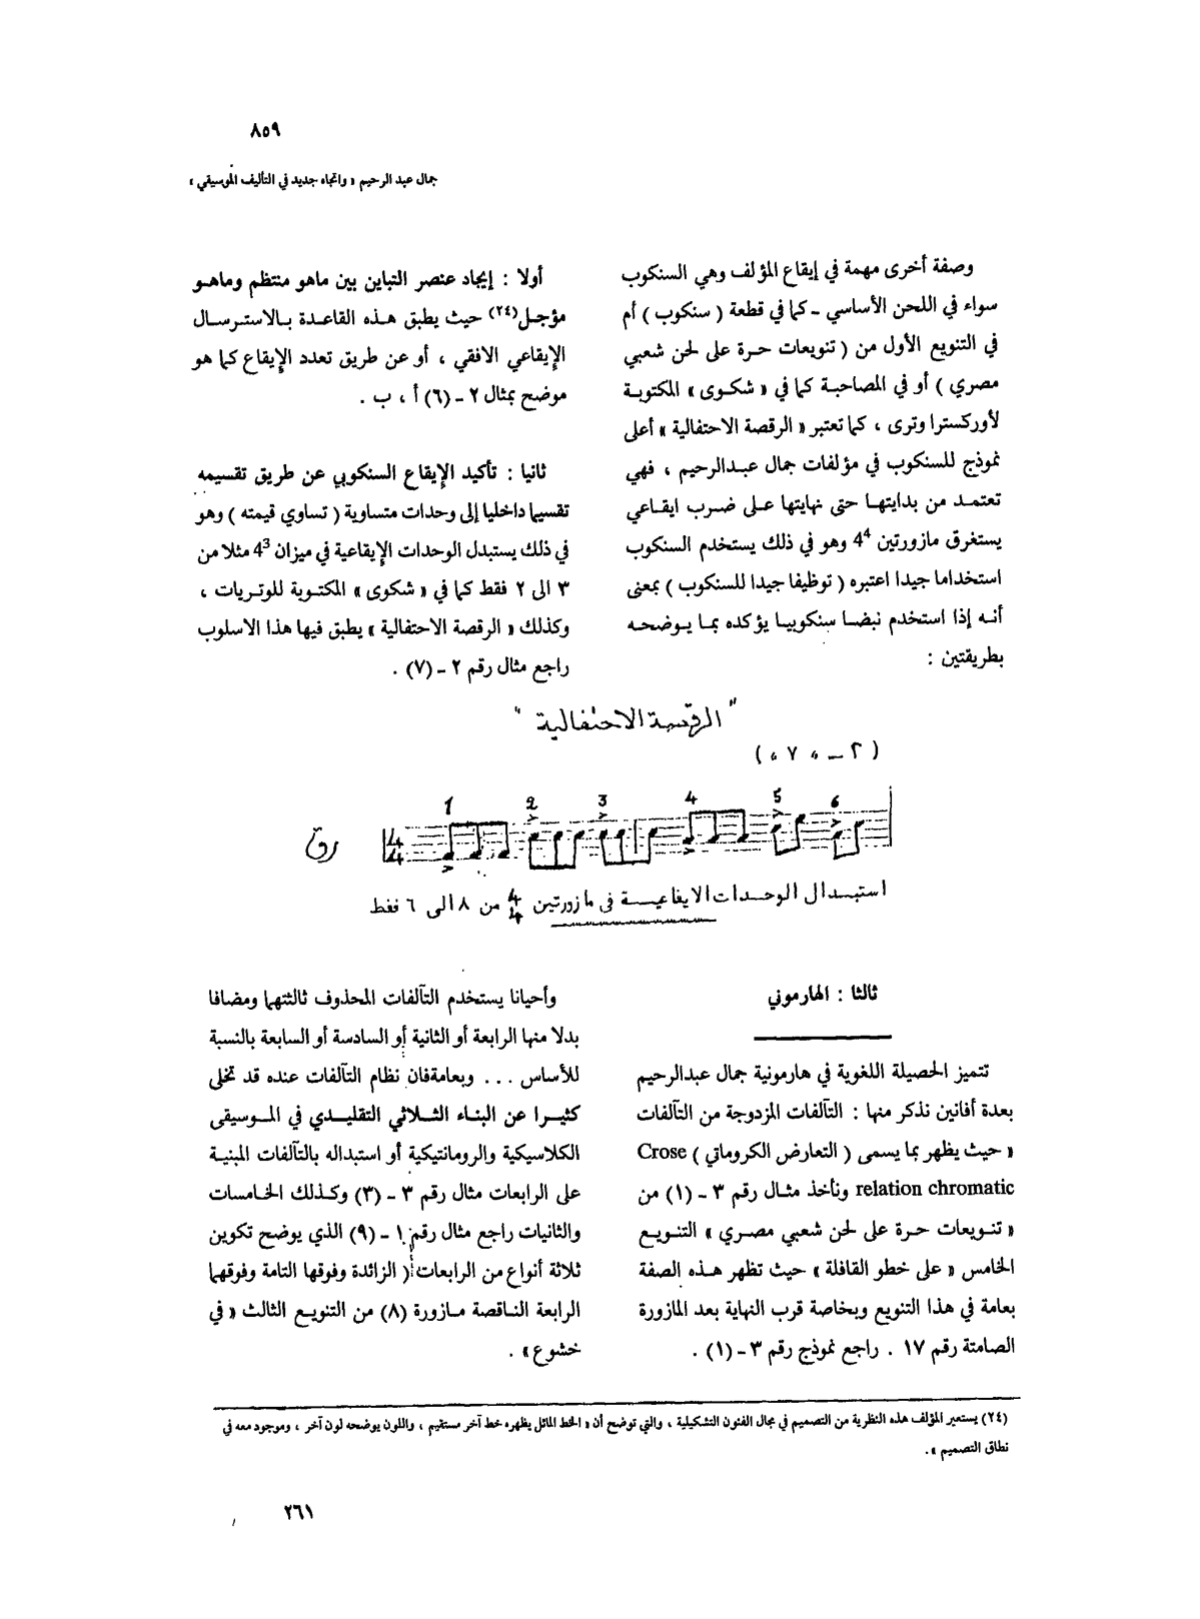 ٨٥٩
جمال عبد الرحيم « واتجاه جديد في التأليف الموسيقي »
وصفة أخرى مهمة في إيقاع المؤلف وهي السنكوب
سواء في اللحن الأساسي ـ كما في قطعة ( سنكوب ) أم
في التنويع الأول من ( تنويعات حرة على لحن شعبي
مصري ) أو في المصاحبة كما في « شكـوى » المكتوبـة
لأوركسترا وترى ، كما تعتبر « الرقصة الاحتفالية » أعلى
نموذج للسنكوب في مؤلفات جمال عبـدالرحيم ، فهي
تعتمـد من بدايتهـا حتى نهايتها عـلى ضـرب ايقـاعي
يستغرق مازورتين 4⁴ وهو في ذلك يستخدم السنكوب
استخداما جيدا اعتبره ( توظيفا جيدا للسنكوب ) بمعنى
أنـه إذا استخدم نبضـا سنكوبيـا يؤكده بمـا يـوضحـه
بطريقتين :
أولا : إيجاد عنصر التباين بين ماهو منتظم وماهـو
مؤجـل(٢٤) حيث يطبق هـذه القاعـدة بـالاستـرسـال
الإيقاعي الافقي ، أو عن طريق تعدد الإيقاع كما هو
موضح بمثال ٢ ـ (٦) أ ، ب .
ثانيا : تأكيد الإيقاع السنكوبي عن طريق تقسيمه
تقسيما داخليا إلى وحدات متساوية ( تساوي قيمته ) وهو
في ذلك يستبدل الوحدات الإيقاعية في ميزان 4³ مثلا من
٣ الى ٢ فقط كما في « شكوى » المكتـوبة للوتـريات ،
وكذلك « الرقصة الاحتفالية » يطبق فيها هذا الاسلوب
راجع مثال رقم ٢ ـ (٧) .
" الرقصة الاحتفالية "
( ٢ ـ « ٧ » )
1 2 3 4 5 6
رق 4/4
استبـدال الوحـدات الايقاعيـة فى مازورتين 4/4 من ٨ الى ٦ فقط
ثالثا : الهارموني
تتميز الحصيلة اللغوية في هارمونية جمال عبدالرحيم
بعدة أفانين نذكر منها : التآلفات المزدوجة من التآلفات
« حيث يظهر بما يسمى ( التعارض الكروماتي ) Crose
relation chromatic ونأخذ مثـال رقم ٣ ـ (١) من
« تنـويعات حـرة على لحن شعبي مصـري » التنـويـع
الخامس « على خطو القافلة » حيث تظهر هـذه الصفة
بعامة في هذا التنويع وبخاصة قرب النهاية بعد المازورة
الصامتة رقم ١٧ . راجع نموذج رقم ٣ ـ (١) .
وأحيانا يستخدم التآلفات المحذوف ثالثتهما ومضافا
بدلا منها الرابعة أو الثانية أو السادسة أو السابعة بالنسبة
للأساس ... وبعامةفان نظام التآلفات عنده قد تخلى
كثيـرا عن البناء الثـلاثي التقليـدي في المـوسيقى
الكلاسيكية والرومانتيكية أو استبداله بالتآلفات المبنيـة
على الرابعات مثال رقم ٣ ـ (٣) وكـذلك الخـامسات
والثانيات راجع مثال رقم ١ ـ (٩) الذي يوضح تكوين
ثلاثة أنواع من الرابعات ( الزائدة وفوقها التامة وفوقهما
الرابعة النـاقصة مـازورة (٨) من التنويـع الثالث « في
خشوع » .
(٢٤) يستعير المؤلف هذه النظرية من التصميم في مجال الفنون التشكيلية ، والتي توضح أن « الخط المائل يظهره خط آخر مستقيم ، واللون يوضحه لون آخر ، وموجود معه في
نطاق التصميم » .
٢٦١